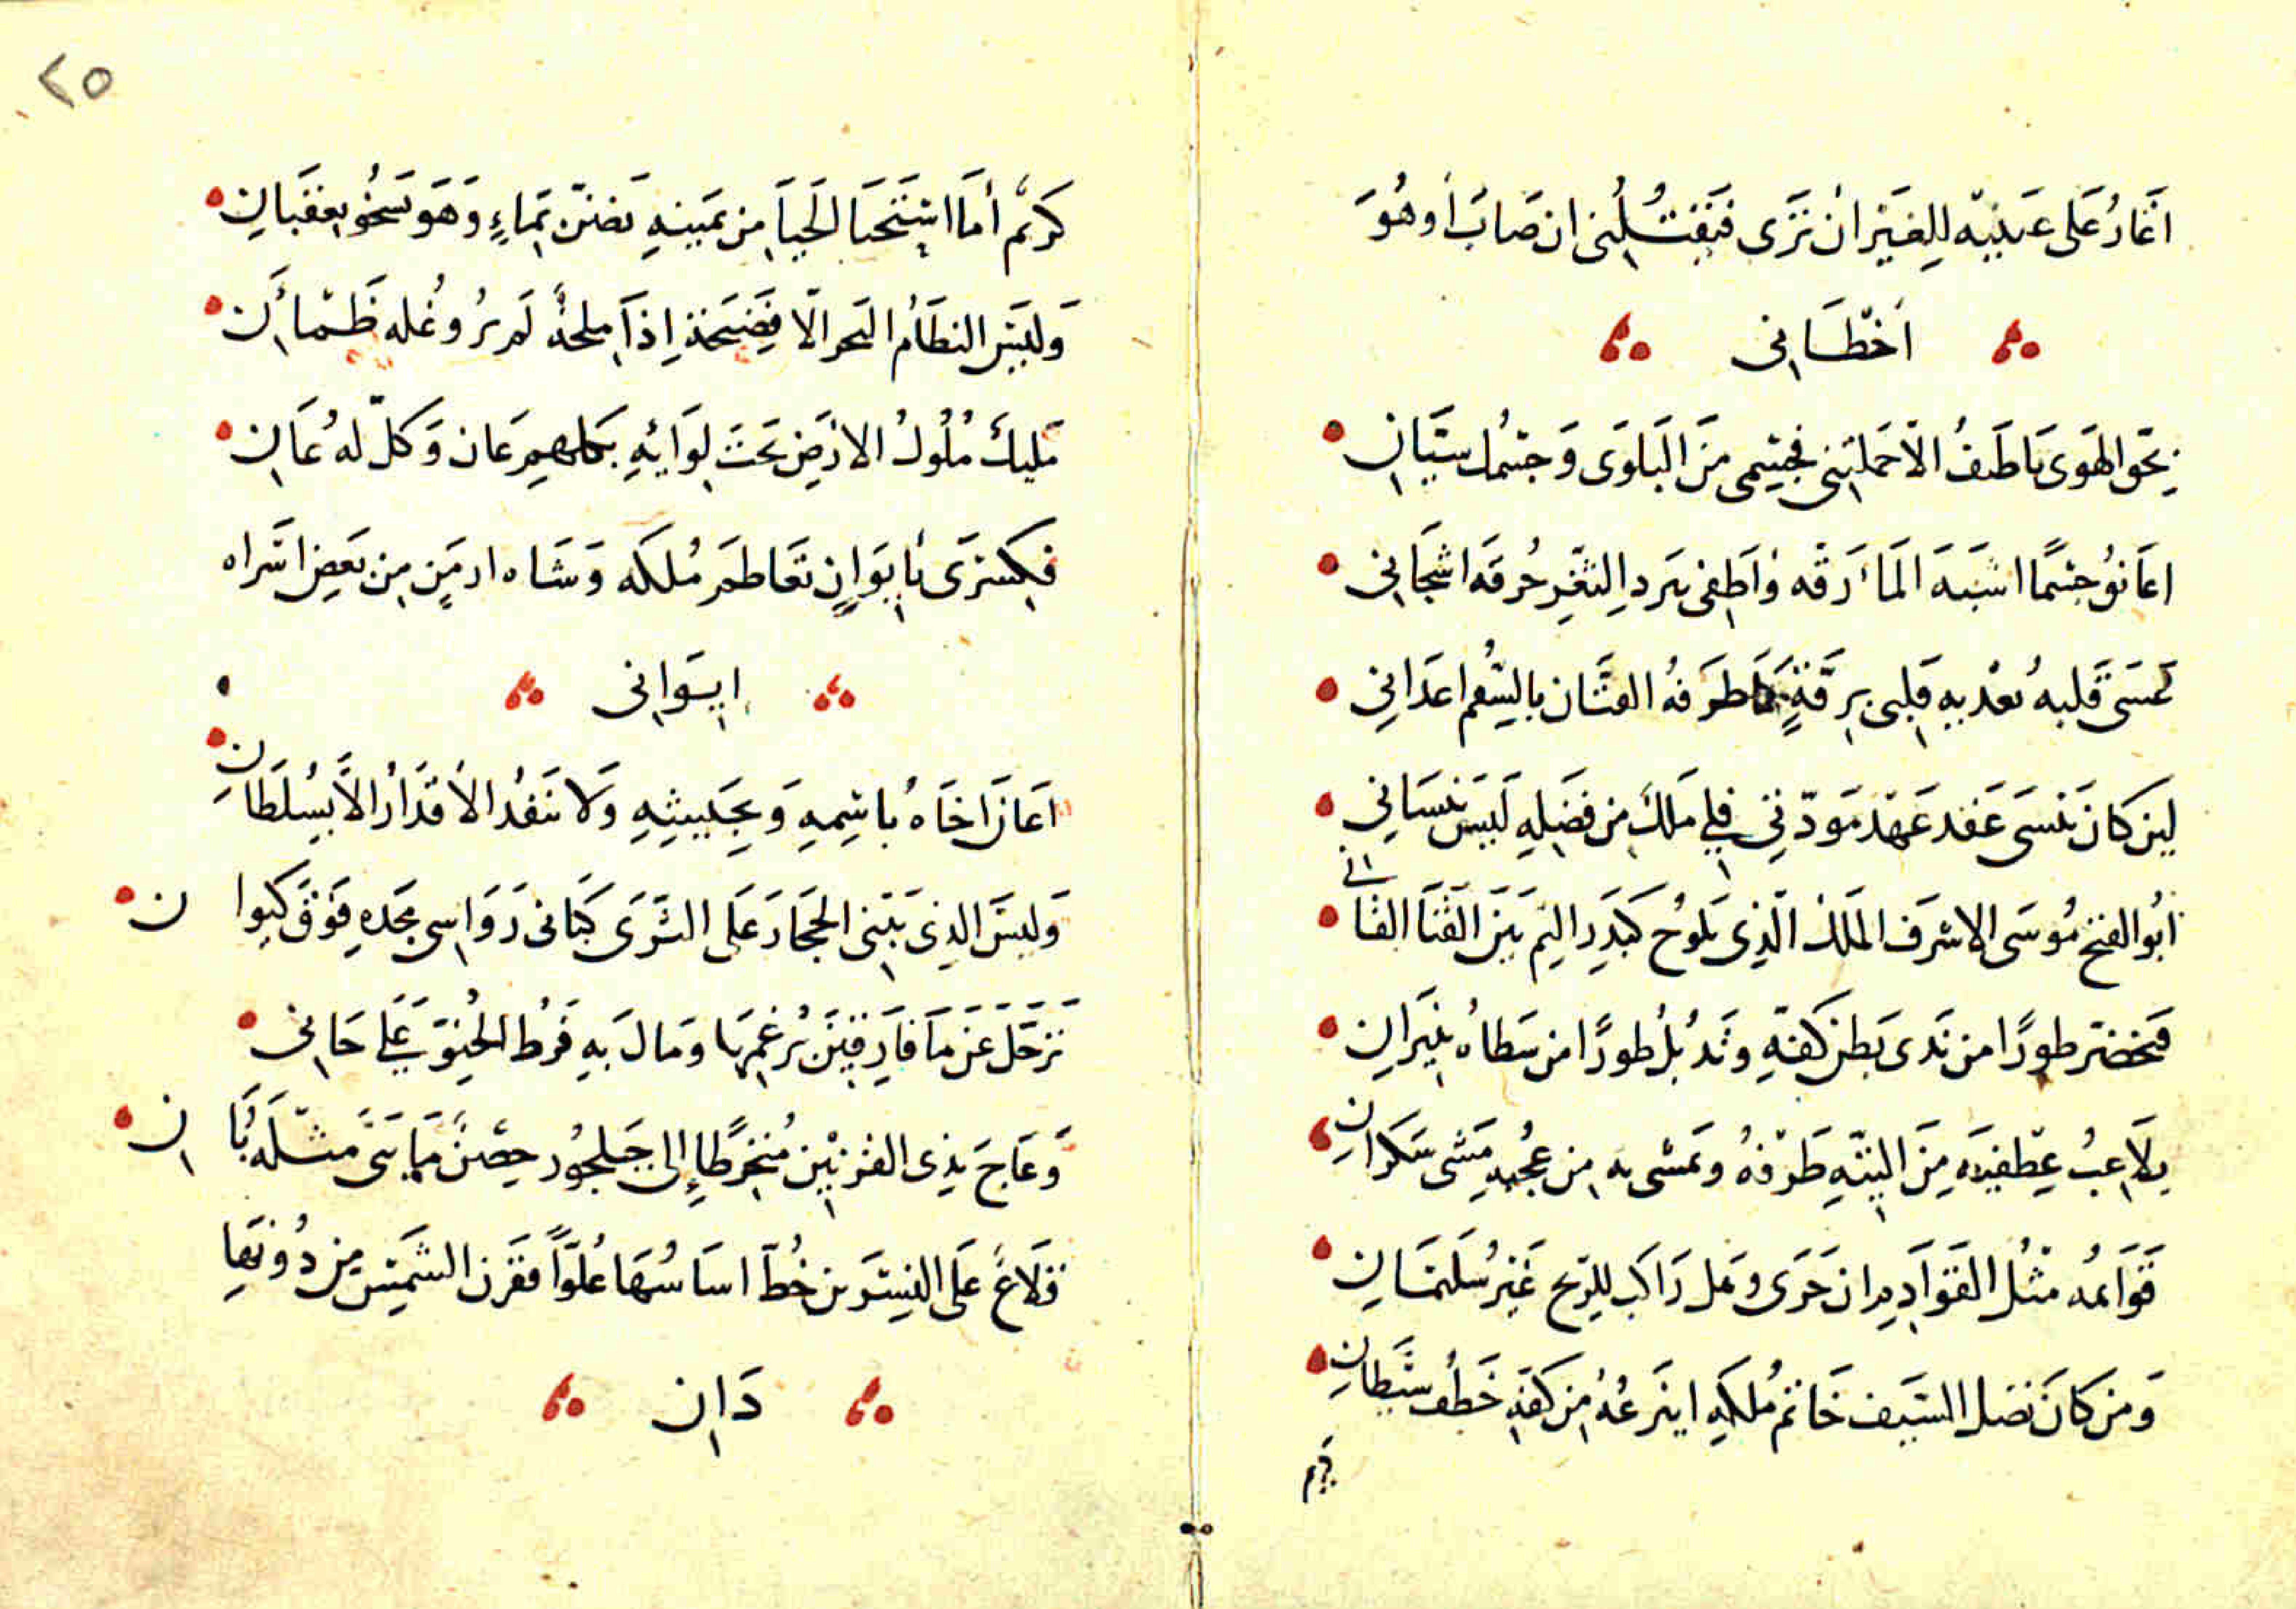 اغار على عينيه للغير ان ترى فتقتلنى ان صاب او هو
اخطانى
بحق الهوى يا طرف الا حملتنى فجسمى من البلوى وجسمك سيان
اعانق جسما اشبه الماء رقه واطفى ببرد الثغر حرقه اشجانى
عسى قلبه يعديه قلبى برقة كما طرفه الفتان بالسقم اعدانى
لين كان ينسى عقد عهد مودتى فلى ملك من فضله ليس ينسانى
ابو الفتح موسى الاشرف الملك الذى يلوح كبدر اليم بين القنا القانى
فتخضر طورا من ندى بطن كفه وتذبل طورا من سطاه بنيران
يلاعب عطفيه من التيه طرفه وتمشى به من عجبه مشى سكران
قوائمه مثل القوادم ان جرى وهل راكب للريح غير سليمان
ومن كان نصل السيف خاتم ملكه اينزعه من كفه خطف شيطان
كريم
٢٥
كريم اما استحيا الحيا من يمينه تضن بماء وهو يسخو بعقيان
وليس النظام البحر الا فضيحة اذا ملحه لم يرو غله ظمأن
مليك ملوك الارض تحت لوائه بكلهم عان وكل له عان
فكسرى بايوان تعاظم ملكه وشاه ارمن من بعض اسراه
ايوانى
اعان اخاه باسمه وبجيشه ولا تنفذ الاقدار الا بسلطان
وليس الذى يبنى الحجار على الثرى كبانى رواسى مجده فوق كيوان
ترحل عن ميافارقين برغمها ومال به فرط الحنو على حانى
وعاج بذى القرنين منخرطا الى جبلجور حصن ما بنى مثله بان
قلاع على النسرين خط اساسها علوا فقرن الشمس من دونها
دان